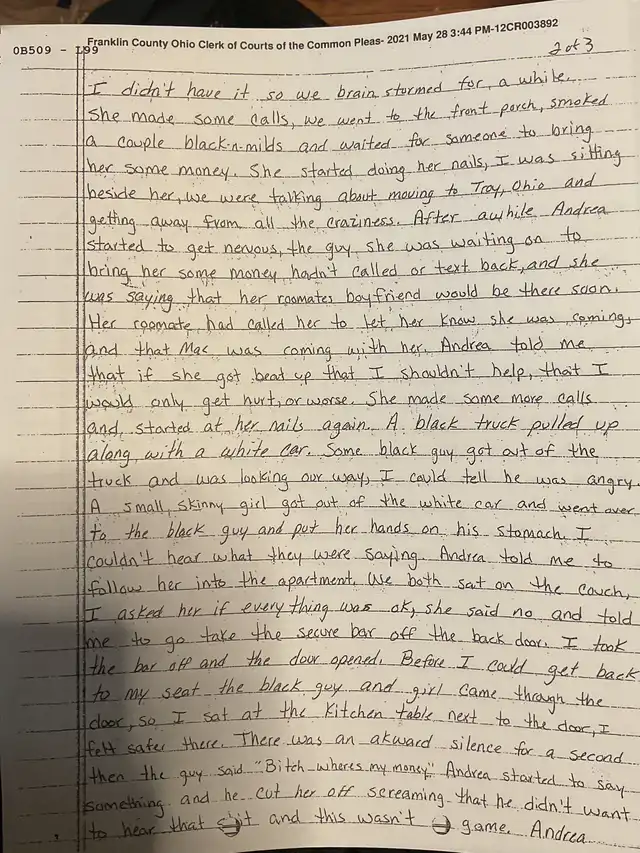 Franklin County Ohio Clerk of Courts of the Common Pleas- 2021 May 28 3:44 PM-12CR003892
0B509 - L99
2 of 3
I didn't have it so we brain stormed for, a while.
She made some calls, we went to the front porch, smoked
a couple black-n-milds and waited for someone to bring
her some money. She started doing her nails, I was sitting
beside her, we were talking about moving to Troy, Ohio and
getting away from all the craziness. After awhile Andrea
started to get nervous, the guy she was waiting on to
bring her some money hadn't called or text back, and she
was saying that her roomates boyfriend would be there soon.
Her roomate had called her to let her know she was coming,
and that Mac was coming with her. Andrea told me
that if she got beat up that I shouldn't help, that I
would only get hurt, or worse. She made some more calls
and started at her nails again. A black truck pulled up
along with a white car. Some black guy got out of the
truck and was looking our way, I could tell he was angry.
A small, skinny girl got out of the white car and went over
to the black guy and put her hands on his stomach. I
couldn't hear what they were saying. Andrea told me to
follow her into the apartment. We both sat on the couch,
I asked her if everything was ok, she said no and told
me to go take the secure bar off the back door. I took
the bar off and the door opened. Before I could get back
to my seat the black guy and girl came through the
door, so I sat at the kitchen table next to the door, I
felt safer there. There was an akward silence for a second
then the guy said "Bitch wheres my money" Andrea started to say
something and he cut her off screaming that he didn't want
to hear that and this wasn't game. Andrea